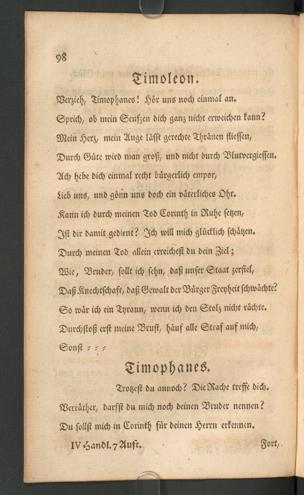 98
Timoleon.
Verzieh, Timophanes! Hör uns noch einmal an.
Sprich, ob mein Seufzen dich ganz nicht erweichen kann?
Mein Herz, mein Auge lässt gerechte Thränen fliessen,
Durch Güte wird man groß, und nicht durch Blutvergiessen.
Ach hebe dich einmal recht bürgerlich empor,
Lieb uns, und gönn uns doch ein väterliches Ohr.
Kann ich durch meinen Tod Corinth in Ruhe setzen,
Ist dir damit gedient? Ich will mich glücklich schätzen.
Durch meinen Tod allein erreichest du dein Ziel;
Wie, Bruder, sollt ich sehn, daß unser Staat zerfiel,
Daß Knechtschaft, daß Gewalt der Bürger Freyheit schwächte?
So wär ich ein Tyrann, wenn ich den Stolz nicht rächte.
Durchstoß erst meine Brust, häuf alle Straf auf mich,
Sonst = = =
Timophanes.
Trotzest du annoch? Die Rache treffe dich.
Verräther, darfst du mich noch deinen Bruder nennen?
Du sollst mich in Corinth für deinen Herrn erkennen.
IV Handl. 7 Auft. Fort,